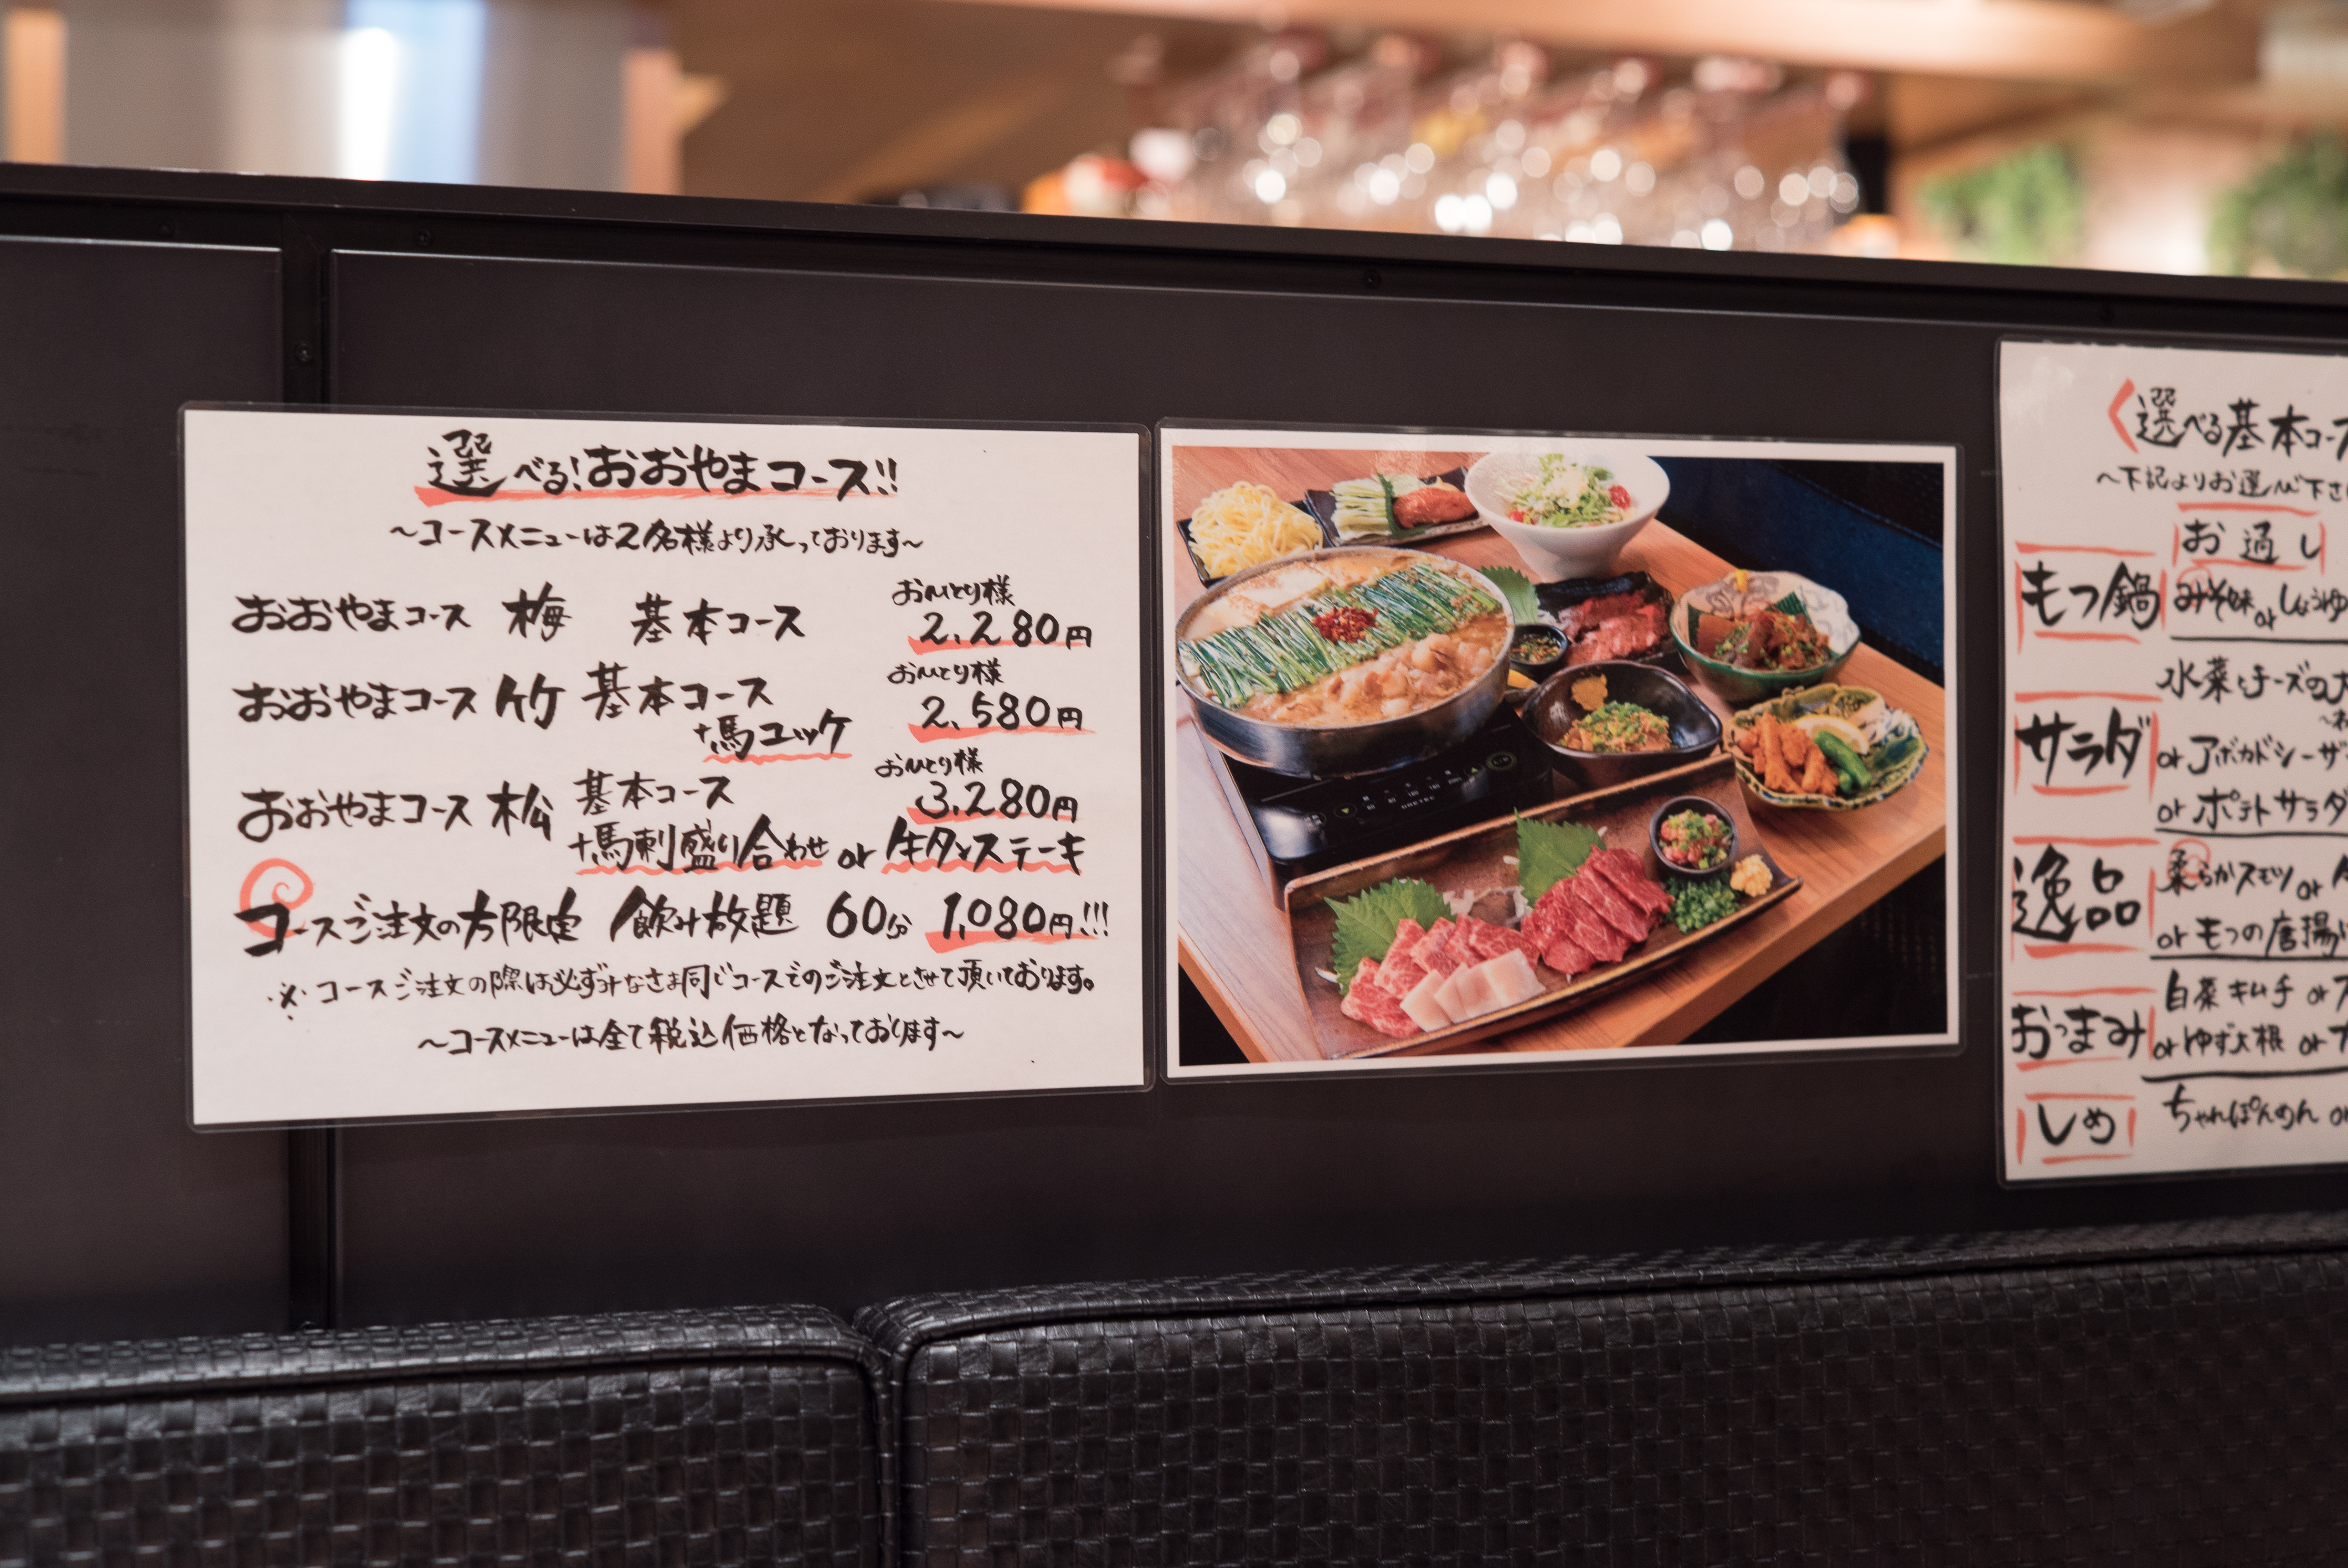 選べる!おおやまコース!!
~コースメニューは2名様より承っております~
おおやまコース 梅 基本コース おひとり様 2,280円
おおやまコース 竹 基本コース おひとり様 2,580円
+馬ユッケ
おおやまコース 松 基本コース おひとり様 3,280円
+馬刺盛り合わせ or 牛タンステーキ
コースご注文の方限定 飲み放題 60分 1,080円!!!
※コースご注文の際は必ずみなさま同じコースでのご注文とさせて頂いております。
~コースメニューは全て税込価格となっております~
〈選べる基本コー
~下記よりお選び下さ
お通し
もつ鍋 みそ味 or しょうゆ
水菜とチーズの
サラダ or アボカドシーザ
or ポテトサラダ
逸品 柔らかスモツ or
or もつの唐揚げ
白菜キムチ or
おつまみ or ゆず大根 or
しめ ちゃんぽんめん or